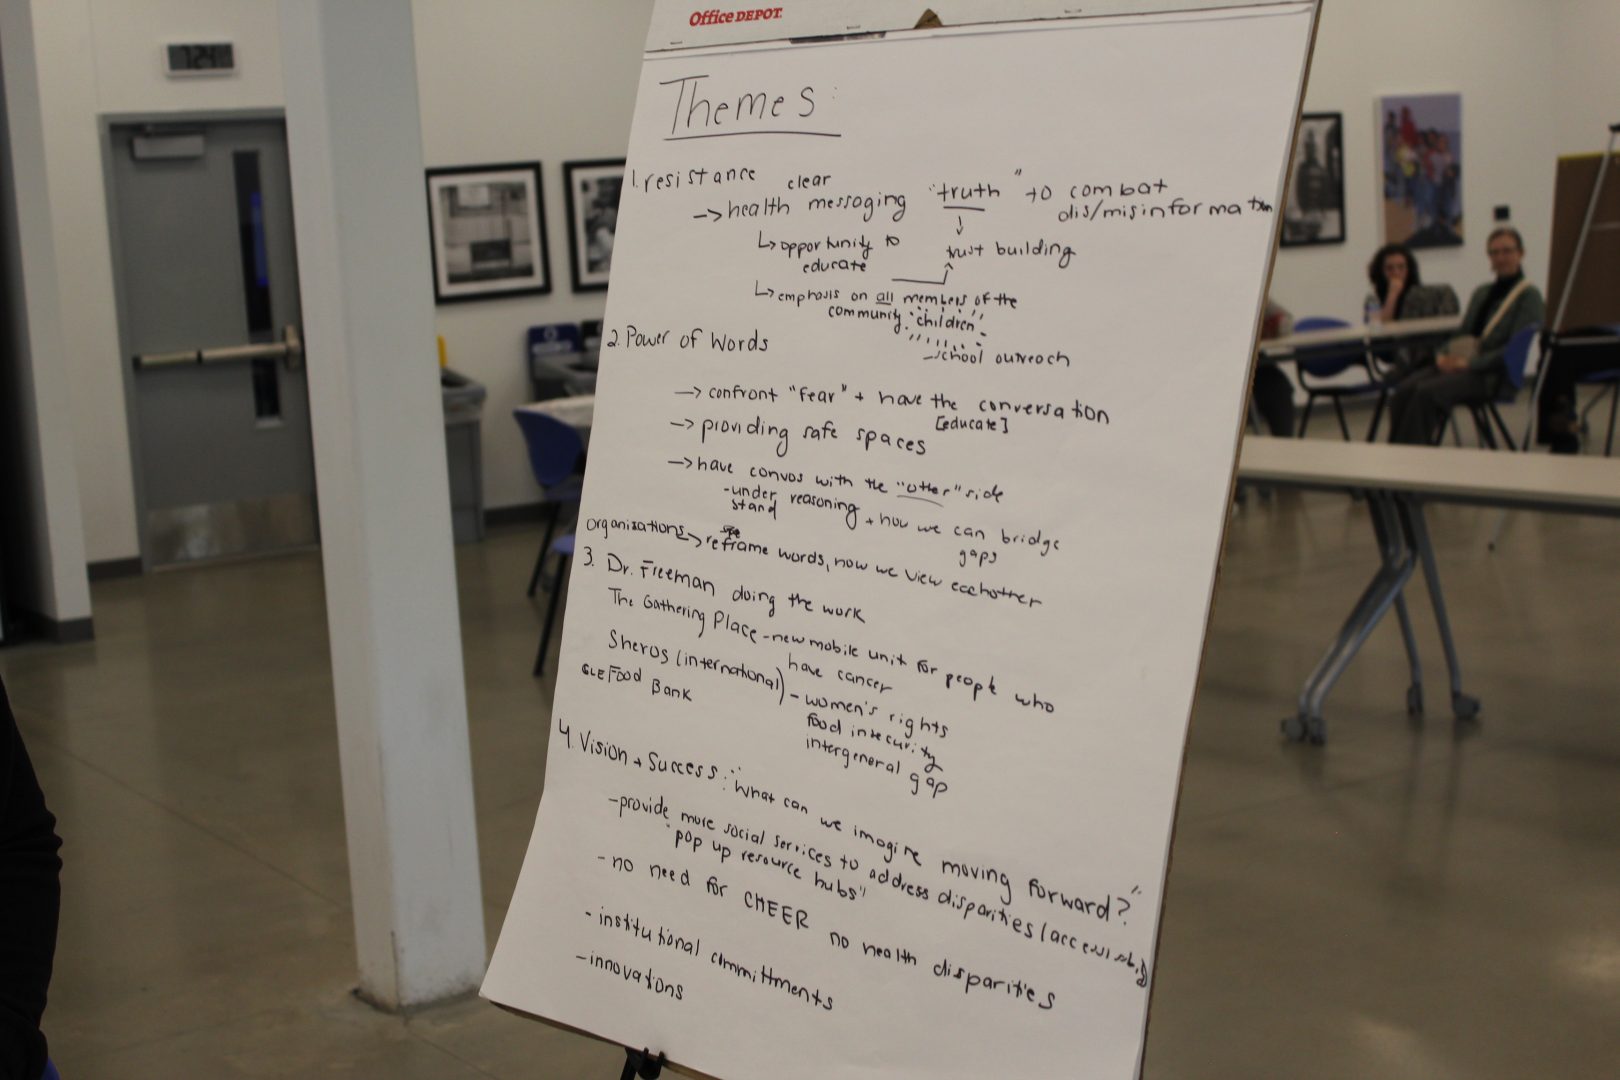 Office DEPOT.
7:24
Themes:
1. resistance
clear
-> health messaging "truth" to combat
dis/misinformation
↳ opportunity to
educate
trust building
↳ emphasis on all members of the
community children
- school outreach
2. Power of Words
-> confront "fear" + have the conversation
[educate]
-> providing safe spaces
-> have convos with the "other" side
- under
stand
reasoning + how we can bridge
gaps
-> reframe words, how we view eachother
organizations
3. Dr. Freeman doing the work
The Gathering Place - new mobile unit for people who
have cancer
Sheros (international) - women's rights
food insecurity
intergeneral gap
CLE Food Bank
4. Vision + Success: "What can we imagine moving forward?"
- provide more social services to address disparities/accessibility
"pop up resource hubs"
- no need for CHEER no health disparities
- institutional committments
- innovations